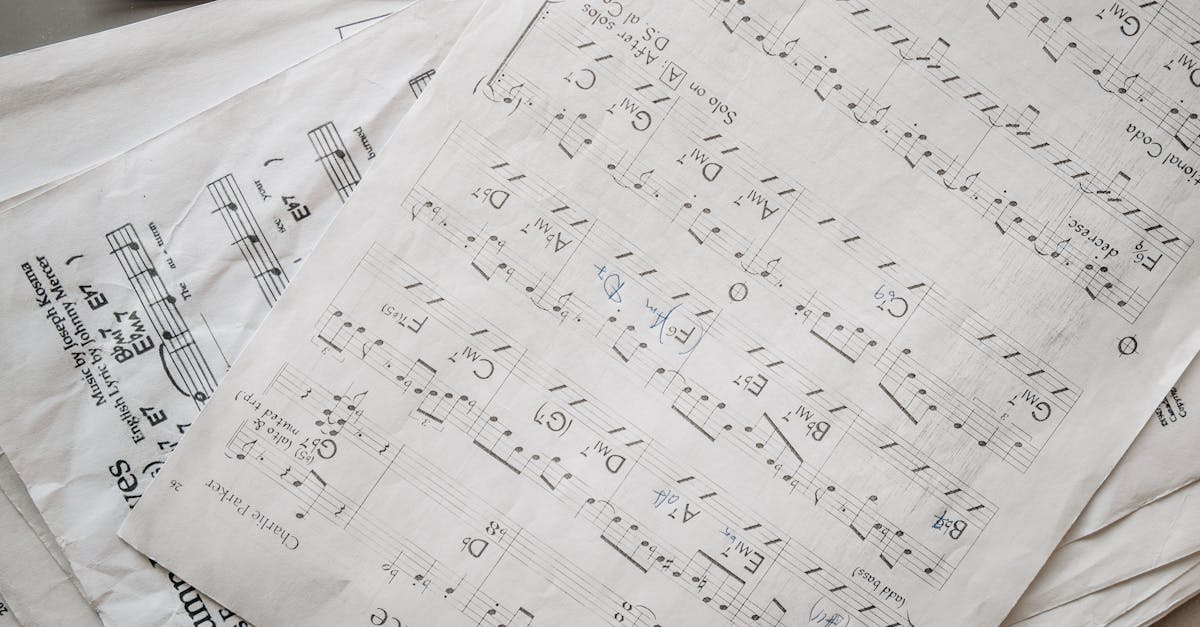 Charlie Parker
26
(alto &
muted trp.)
D♭
G♭7
(add bass)
EMI7 ♭5
A7 alt
DMI7
(G7)
CMI7
F7(#5)
B♭7
B♭MI7
E♭7
(F6)
Am D7
A♭MI7
D♭7
GMI7
C7♭9
AMI7
DMI7
GMI7
C7
Solo on A; After solos
D.S. al Co
F6/9
decresc.
tional Coda
GMI7
ves
Music by Joseph Kosma
English Lyric by Johnny Mercer
E7
B♭MI7
E♭7
E♭MA7
The au - tumn
E♭7
see your
burned